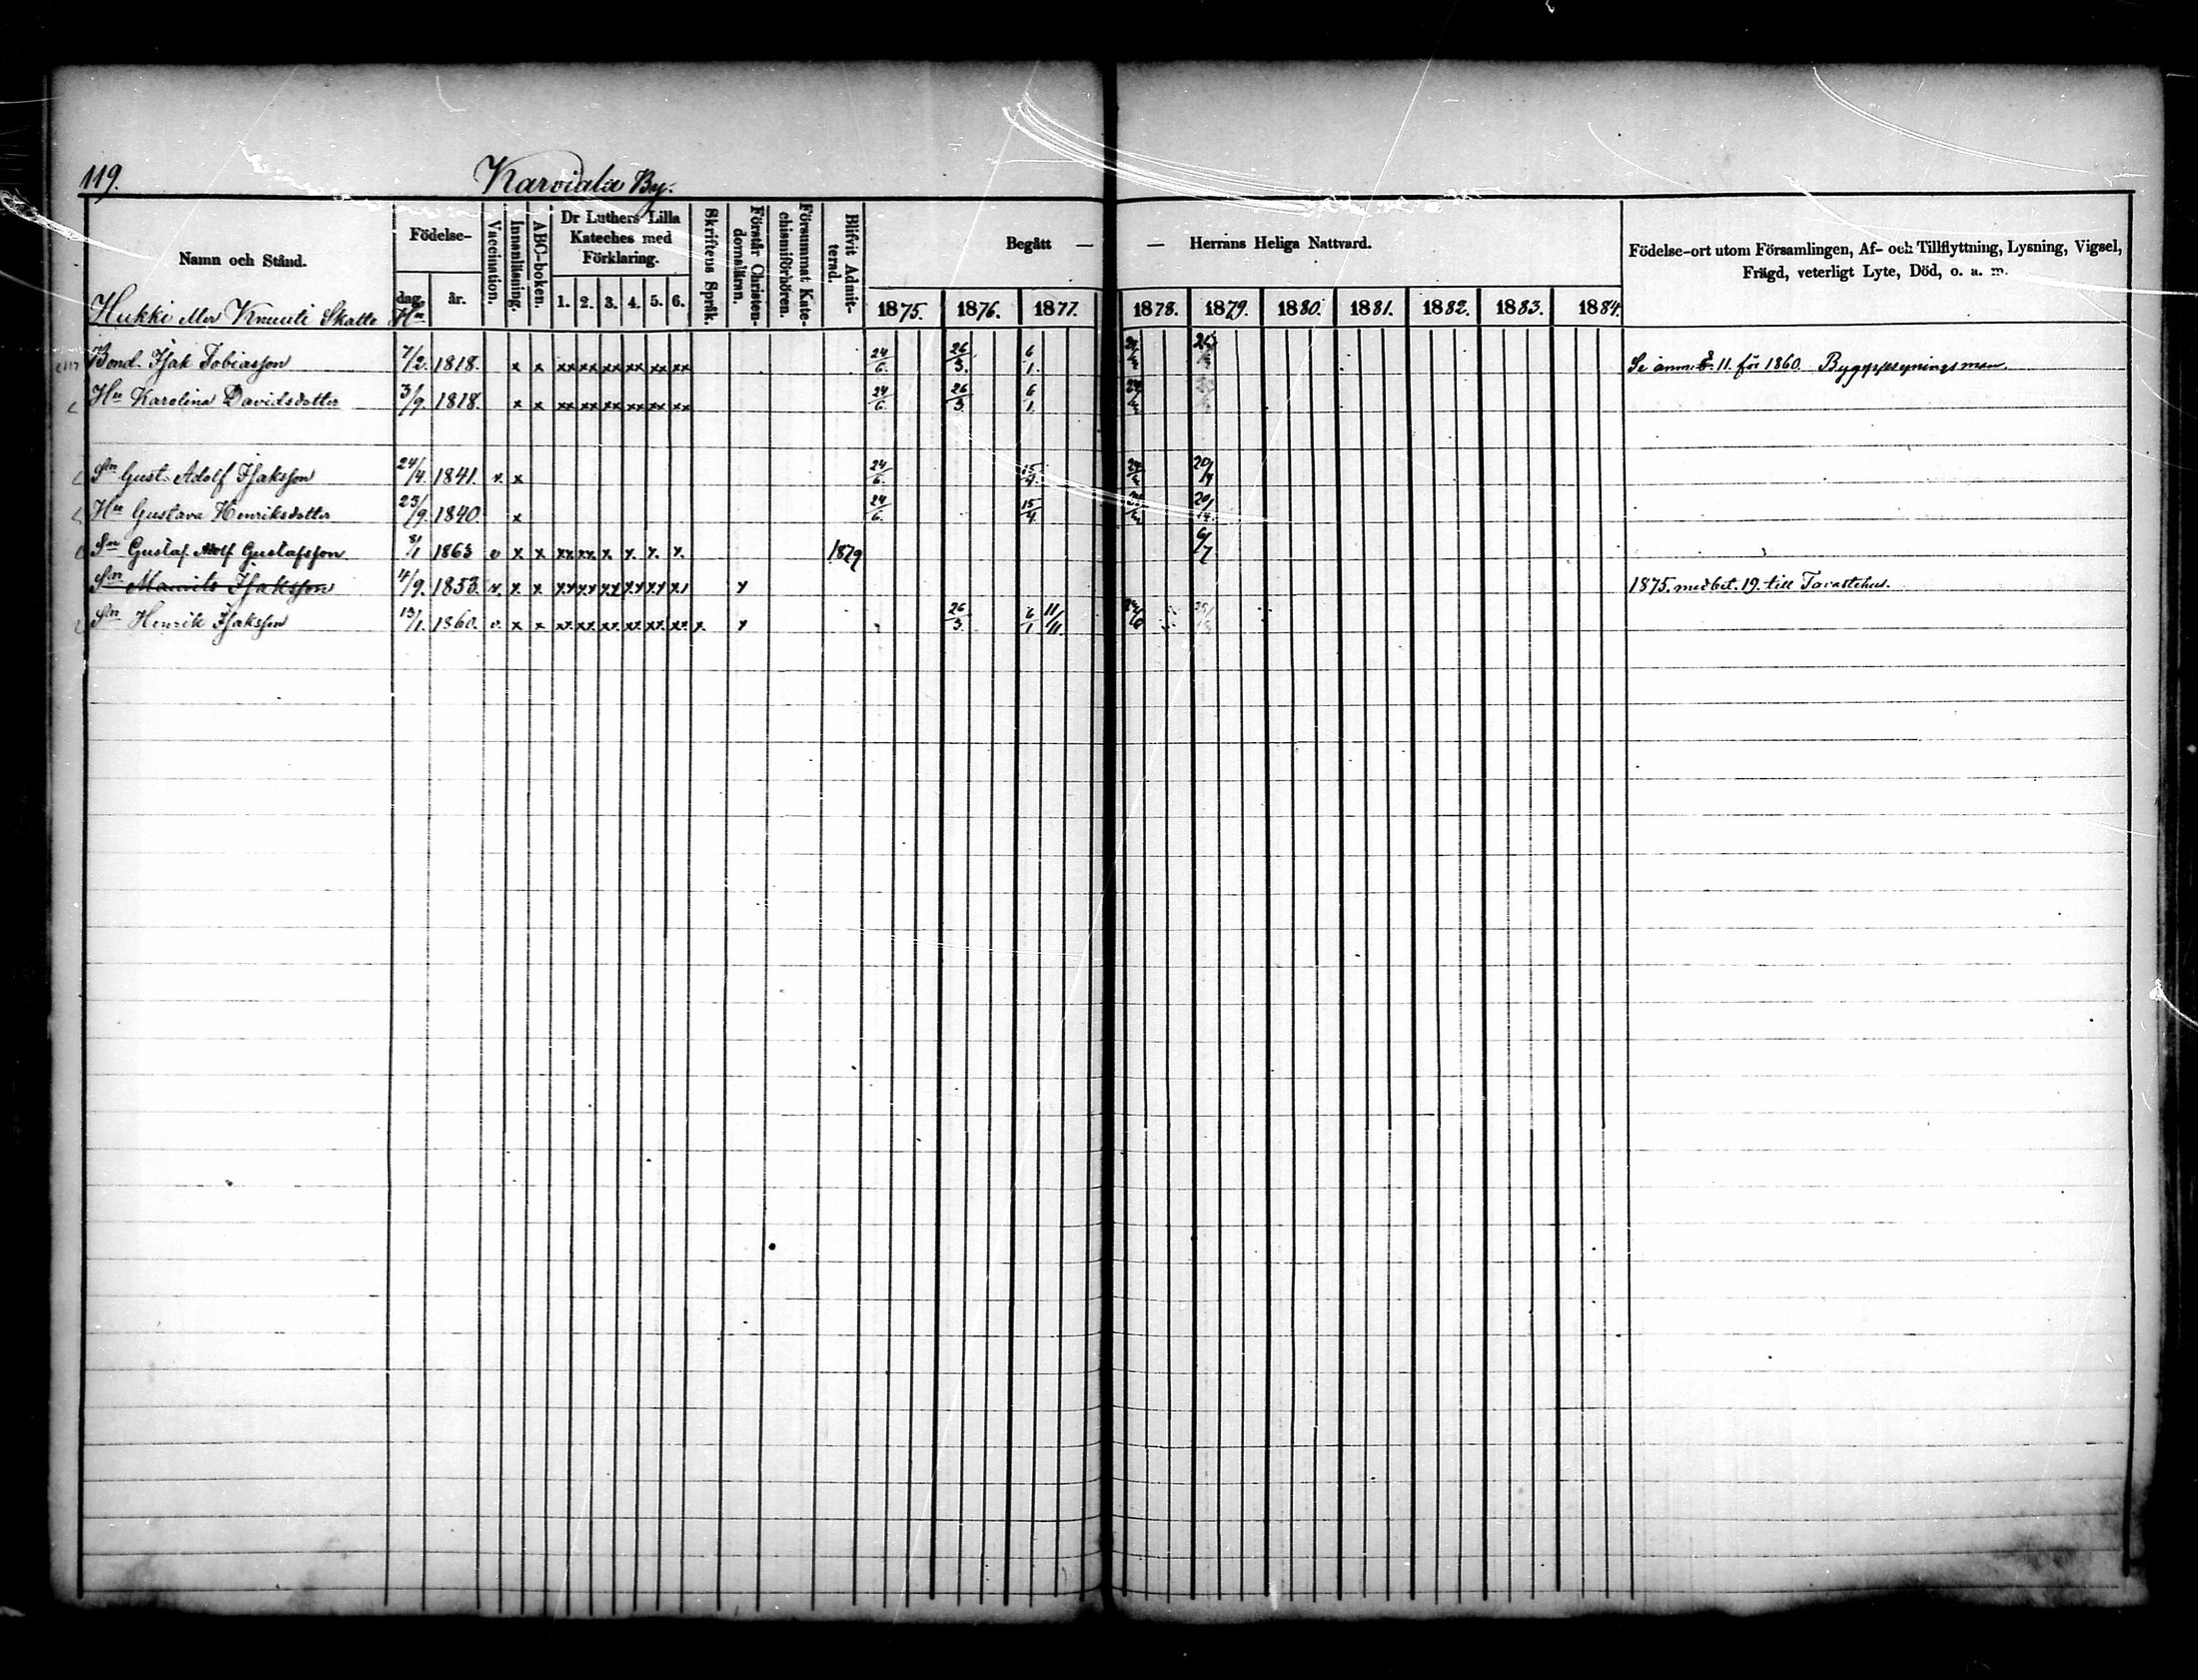 119.
Karviala By.
Namn och Stånd.
Födelse-
dag.
år.
Vaccination.
Innanläsning.
ABC-boken.
Dr Luthers Lilla
Kateches med
Förklaring.
1. 2. 3. 4. 5. 6.
Skriftens Språk.
Förstår Christen-
domsläran.
Försummat Kate-
chismiförhören.
Blifvit Admit-
terad.
Begått — — Herrans Heliga Nattvard.
1875. 1876. 1877. 1878. 1879. 1880. 1881. 1882. 1883. 1884.
Födelse-ort utom Församlingen, Af- och Tillflyttning, Lysning, Vigsel,
Frägd, veterligt Lyte, Död, o. a. m.
Hukki eller Knuuti Skatte Hn
Bond. Isak Tobiasson 7/2. 1818. x x xx xx xx xx xx xx 24/6. 26/3. 6/1. Se anm. 11. för 1860.
Hu Karolina Davidsdotter 3/9 1818. x x xx xx xx xx xx xx 24/6. 26/3. 6/1.
Sn Gust. Adolf Isaksson 24/4. 1841. v. x 24/6. 15/4. 20/4
Hu Gustava Henriksdotter 23/9. 1840. x 24/6. 15/4. 20/
Sn Gustaf Adolf Gustafsson 8/1 1863 v x x xx xx x x. x. x. 1879 6/7
Sn Maurits Isaksson 4/9. 1853. v. x. x xx xx xx xx xx x 1875. med bet. 19. till Tavastehus.
Sn Henrik Isaksson 13/1. 1860. v. x x xx. xx. xx. xx. xx. xx. x. 26/3. 6/1 11/11.